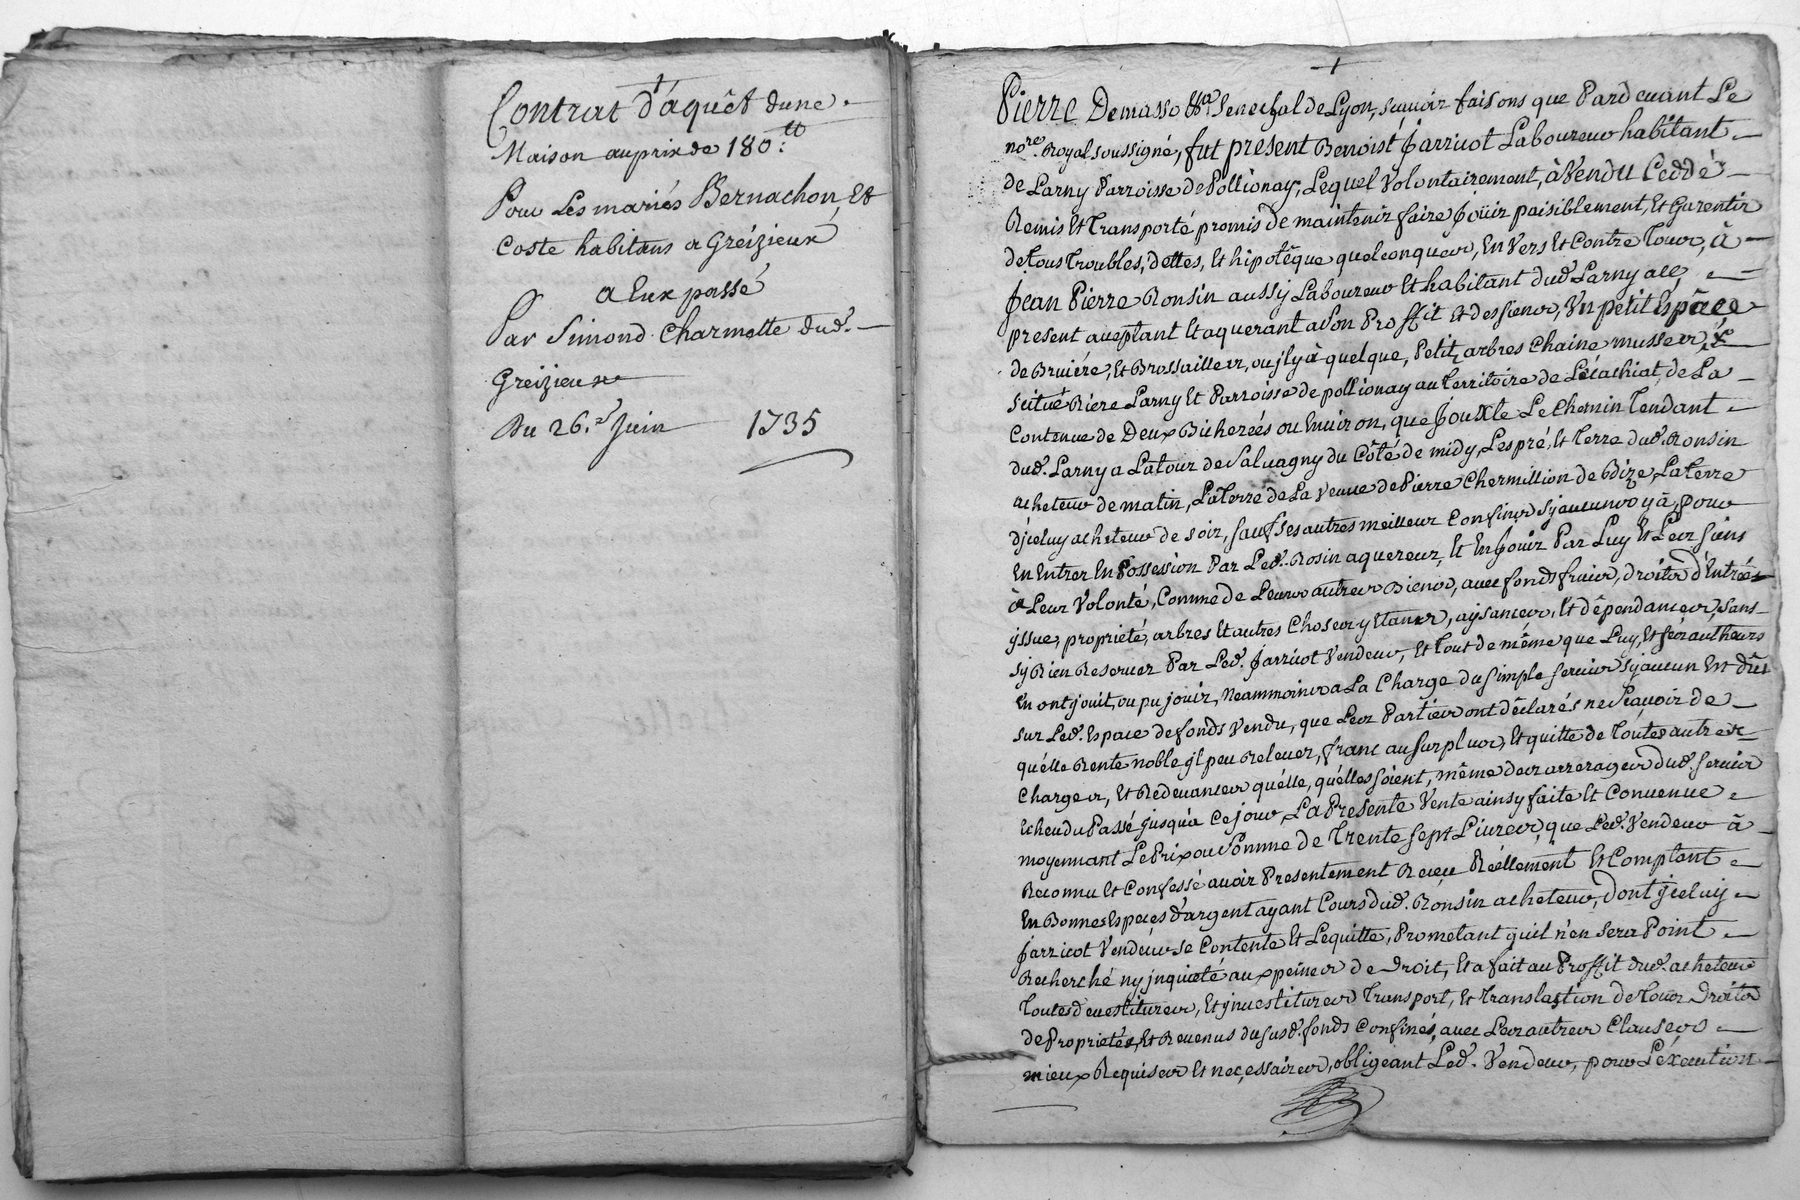 Contrat d'aquêt dune
Maison au prix de 180.tt
Pour Les mariés Bernachon Et
Coste habitans a Greizieux
a Eux passé
Par Simond Charmette dud.
Greizieux
Du 26.e Juin 1735
Pierre Demasso Senechal de Lyon, scavoir faisons que Pardevant Le
no.re Royal soussigné, fut present Benoist Jarricot Laboureur habitant
de Larny Parroisse de Pollionay, Lequel Volontairement, à Vendu Ceddé
Remis Et Transporté promis de maintenir faire Joüir paisiblement, Et Garentir
de Tous Troubles, dettes, Et hipotêque quelconques, En Vers Et Contre Tous, à
Jean Pierre Ronsin aussy Laboureur Et habitant dud. Larny
present aceptant Et aquerant a son Proffit Et des siens, Vn petit Espâce
de Bruiére, Et Brossailles, ou jl y à quelque, Petit, arbres Chaine
scitué Riere Larny Et Parroisse de pollionay au Territoire de de La
Contenue de Deux Bicherées ou Enuiron, que Jouxte Le Chemin Tendant
dud. Larny a Latour de Saluagny du Côté de midy, Les pré, Et Terre dud. Ronsin
acheteur de matin, La Terre de La Veuue de Pierre Chermillion de La Terre
D'jceluy acheteur de soir, sauf ses autres meilleur Confins sy aucun n y â, pour
En Entrer En Possession Par Led. Rosin aquereur, Et En Joüir Par Luy Et Les siens
â Leur Volonté, Comme de Leurs autres Biens, auec fonds fruis, droits d'Entrées
yssue, propriété, arbres Et autres Choses y Etans, aysances, Et dêpendances, sans
sy Rien Reseruer Par Led. Jarricot Vendeur, Et Tout de même que Luy, Et ses autheurs
En ont jouit, ou pu jouir, Neammoins a La Charge du simple seruis sy aucun Est dû
sur Led. Espace de fonds Vendu, que Les Parties ont dêclarés ne Scauoir de
quélle Rente noble jl peu Releuer, franc au surplus, Et quitte de Toutes autres
Charges, Et Redeuances quélle, quélles soient, même des arrerages dud. seruis
Echeu du Passé jusquà Ce jour, La Presente Vente ainsy faite Et Conuenue
moyennant Le Prix ou Somme de Trente sept Liures, que Led. Vendeur â
Reconnu Et Confessé auoir Presentement Receu Réellement Et Comptant
En Bonnes Especes d'argent ayant Cours dud. Ronsin acheteur, dont jceluy
Jarricot Vendeur se Contente Et Le quitte, Prometant quil n'en sera Point
Recherché ny jnquieté aux peines de Droit, Et a fait au Proffit dud. acheteur
Toutes deuestitures, Et jnuestitures Transport, Et Translastion de Tous Droits
de Proprietés, Et Reuenus du susd. fonds Confinés, auec Les autres Clauses
mieux Requises Et necessaires, obligeant Led. Vendeur, pour L'éxecution